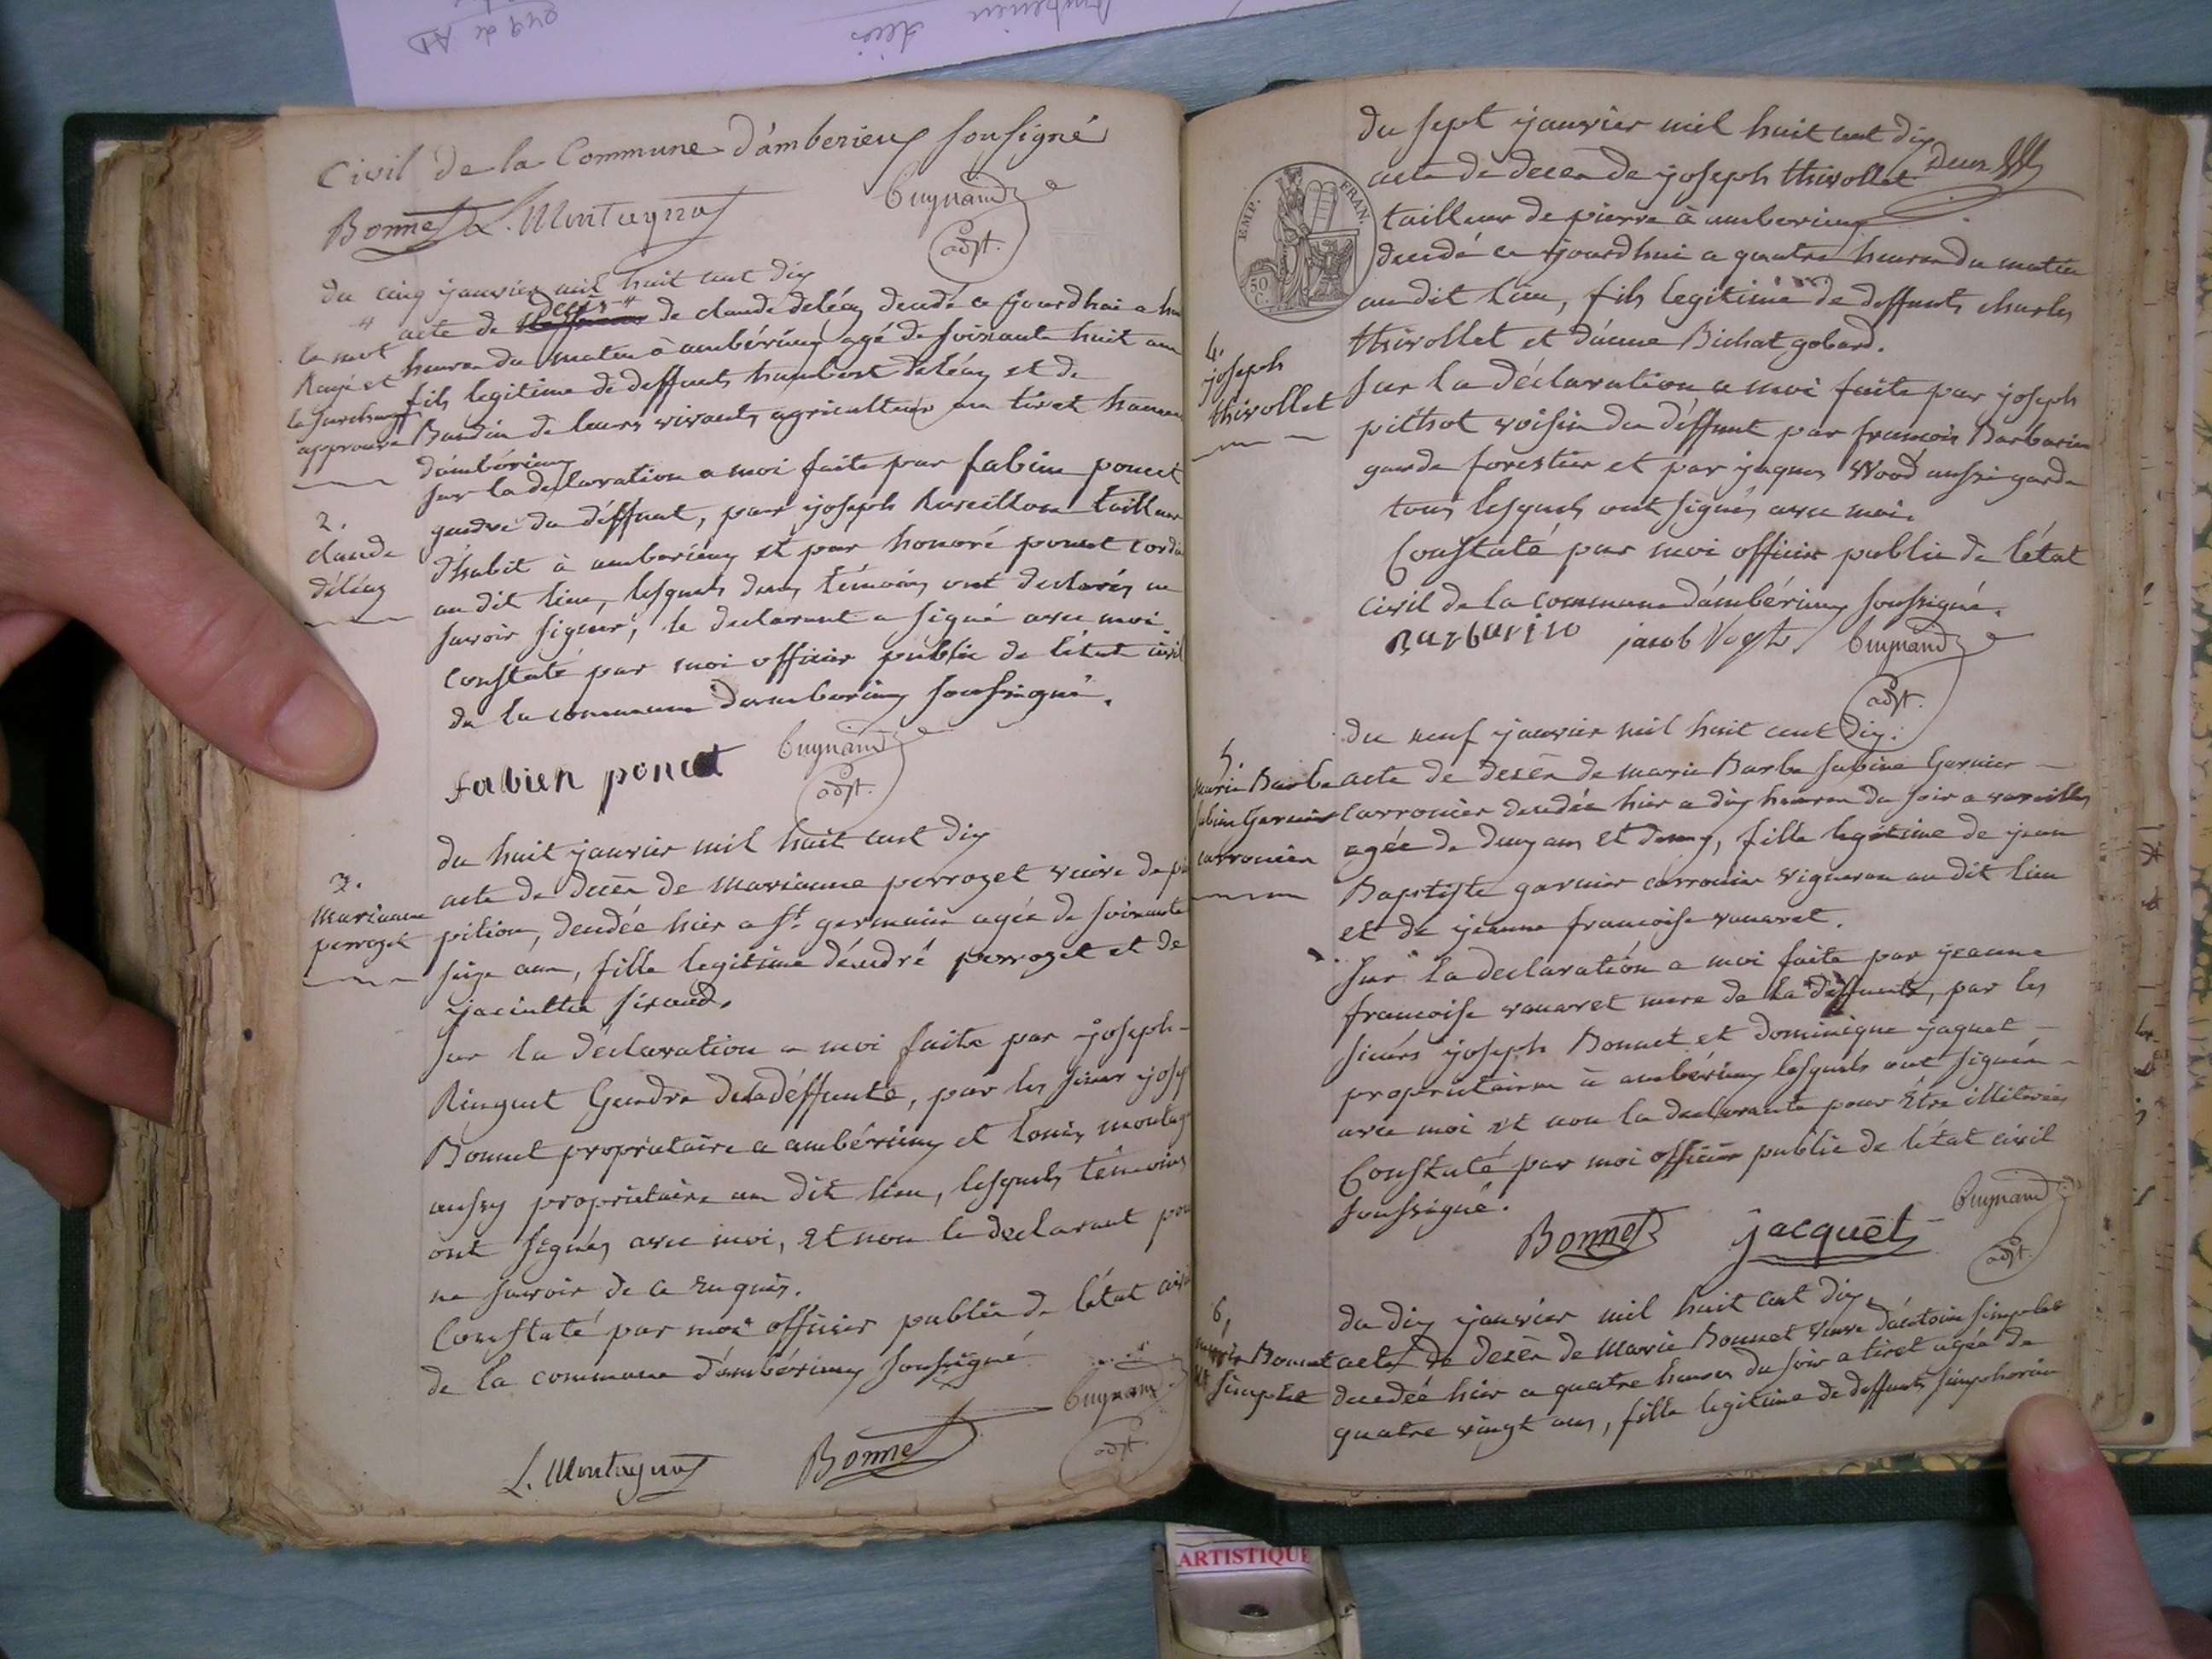 Civil de la Commune d'amberieux sousigné
Bonnet L. Montagnat Guynand
adjt.
du cinq janvier mil huit cent dix
acte de décès de claude deléaz décédé ce jourdhui a huit
heures du matin à ambérieux agé de soixante huit ans
fils legitime de deffunts humbert deléaz et de
Baudin de leurs vivants agriculteurs au tiret hameau
d'ambérieux
le mot
Rayé et
la surcharge
approuvé
2.
claude
déléaz
sur la declaration a moi faite par fabien poncet
gendre du déffunt, par joseph Reveillon tailleur
d'habit à amberieux et par honoré poncet
au dit lieu, lesquels deux témoins ont declarés ne
savoir signer, le declarant a signé avec moi
constaté par moi officier public de l'état civil
de la commune damberieux soussigné.
fabien poncet Guynand
adjt.
du huit janvier mil huit cent dix
3.
marianne
perrozet
acte de décès de marianne perrozet veuve de
pition, décédée hier a St. germain agée de soixante
seize ans, fille legitime d'éndré perrozet et de
jacinthe siraud.
sur la déclaration a moi faite par joseph
Ringuet Gendre de la déffunte, par les sieurs
Bonnet propriétaire a ambérieux et louis
aussy propriétaire au dit lieu, lesquels témoins
ont signés avec moi, et non le declarant pour
ne savoir de ce enquis.
Constaté par moi officier public de l'état civil
de la commune d'ambérieux soussigné
L. Montagnat Bonnet Guynand
adjt.
du sept janvier mil huit cent dix
acte de decès de joseph thivollet
tailleur de pierre à amberieux
décédé ce jourdhui a quatre heures du matin
au dit lieu, fils legitime de deffunts charles
thivollet et d'anne Bichat gobard.
EMP. FRAN.
50
C.
4.
joseph
thivollet
sur la déclaration a moi faite par joseph
pithot voisin du déffunt par francois Barbarin
garde forestier et par jaques Wood aussi garde
tous lesquels ont signés avec moi.
Constaté par moi officier public de l'état
civil de la commune d'ambérieux soussigné.
Barbarin jacob Guynand
adjt.
du neuf janvier mil huit cent dix.
5.
marie Barbe
sabine Garnier
carronier
acte de decès de marie Barbe sabine Garnier
carronier decédée hier a dix heures du soir a vareilles
agée de deux ans et demy, fille legitime de jean
Baptiste garnier carronier vigneron au dit lieu
et de jeanne francoise vanaret.
sur la declaration a moi faite par jeanne
francoise vanaret mere de la déffunte, par les
sieurs joseph Bonnet et dominique jaquet
proprietaires à ambérieux lesquels ont signés
avec moi et non la declarante pour être illiterée
Constaté par moi officier public de létat civil
soussigné.
Bonnet jacquet Guynand
adjt.
du dix janvier mil huit cent dix.
6,
marie Bonnet
simplet
acte de decès de Marie Bonnet veuve d'antoine simplet
decedée hier a quatre heures du soir a tiret agée de
quatre vingt ans, fille legitime de deffunts simphorien
ARTISTIQUE